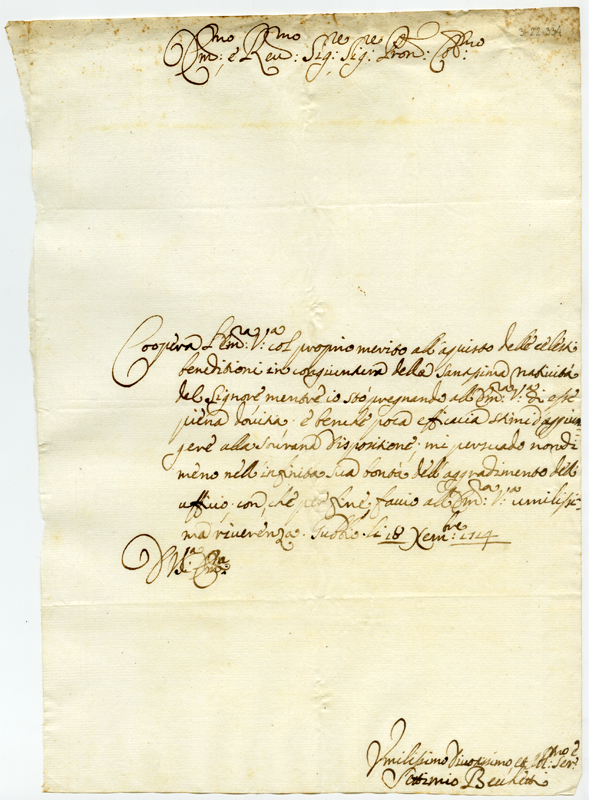 Em:mo e Reu:mo Sig:re Sig:re Pron: Col:mo
Coopera l'Em:ra V:ra col proprio merito all'aquisto delle celesti
benditioni in congiuntura della Santissima natiuità
del Signore mentre io stò pregando all'Em:ra V:ra di esse
piena douitia. e benche poca efficacia stimi d'aggiun-
gere alla sourana dispositione; mi persuado nondi-
meno nell'infinita sua bontà dell'aggradimento dell'
ufficio. con che per fine faccio all'Em:ra V:ra umilissi-
ma riuerenza. Gubbio li 18 Xem:bre 1714
D V:ra Em:za
Vmilissimo Diuotissimo et Obl:mo Ser:e
Settimio Becchetti